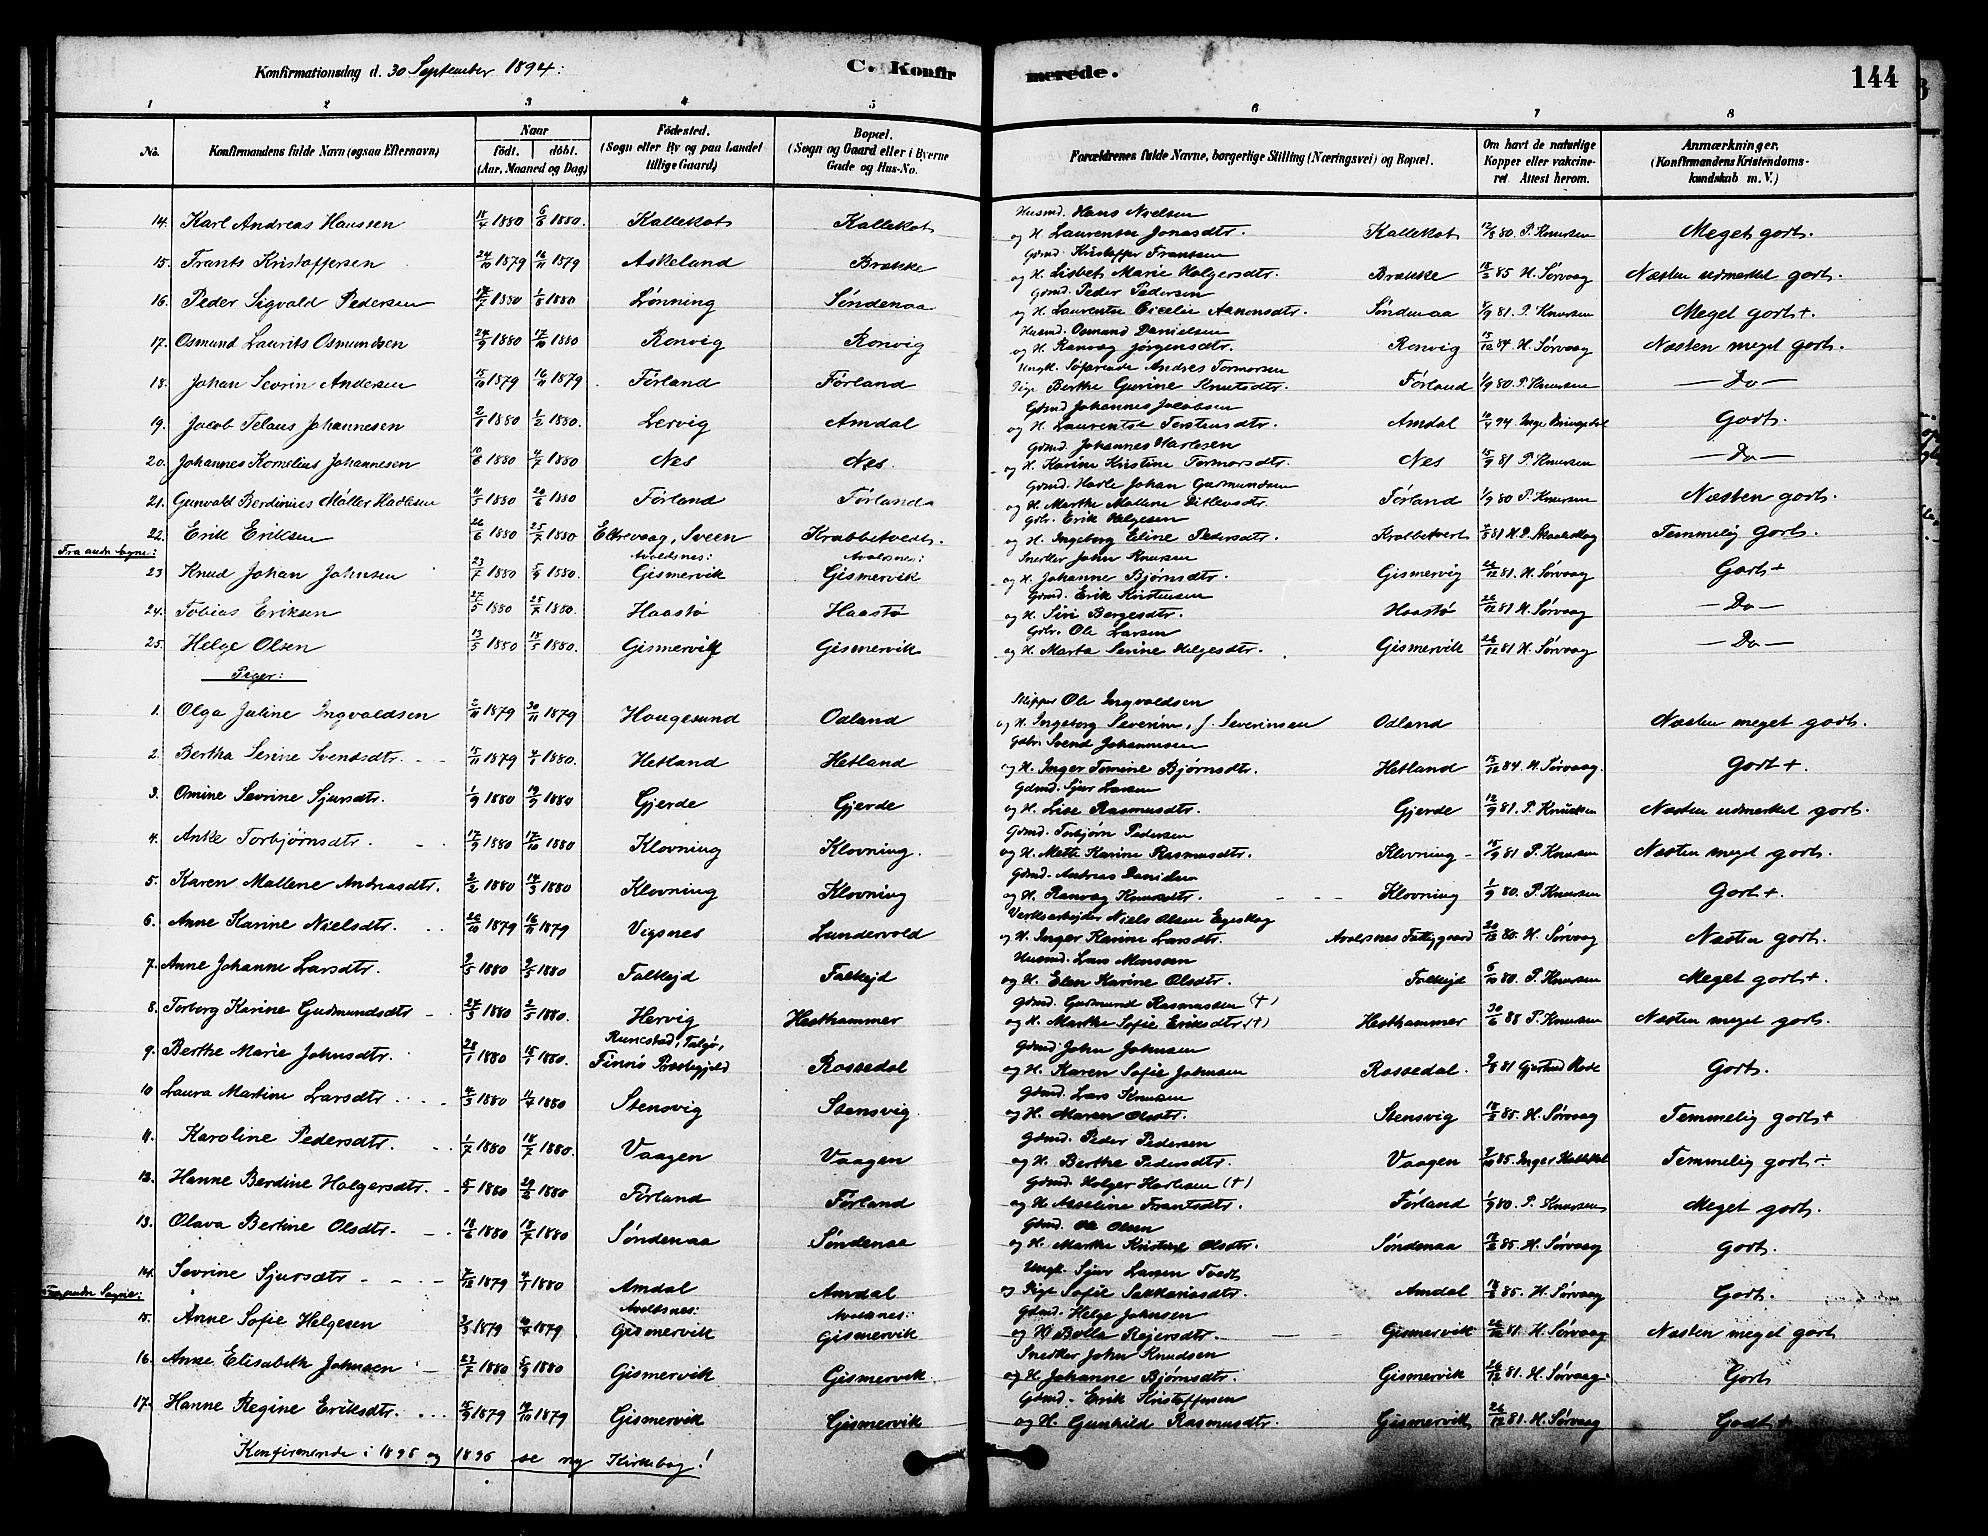 Konfirmationsdag d. 30 September 1894:
C. Konfirmerede.
144
1 2 3 4 5 6 7 8
No. Konfirmandens fulde Navn (ogsaa Efternavn) Naar födt. döbt. (Aar, Maaned og Dag) Födested. (Sogn eller By og paa Landet tillige Gaard) Bopæl. (Sogn og Gaard eller i Byerne Gade og Hus-No. Forældrenes fulde Navne, borgerlige Stilling (Næringsvei) og Bopæl. Om havt de naturlige Kopper eller vakcineret. Attest herom. Anmærkninger. (Konfirmandens Kristendomskundskab m. V.)
Husmd. Hans Nielsen
14. Karl Andreas Hansen 18/4 1880 6/6 1880. Kallekot Kallekot og H. Laurentse Jonasdtr. Kallekot 12/8 80. P. Knutsen Meget godt.
Gdmd. Kristoffer Frantsen
15. Frants Kristoffersen 24/10 1879 16/11 1879 Askeland Brække og H. Lisbet Marie Holgersdtr. Brække 18/2 85 H. Sørvaag Næsten udmerket godt.
Gdmd. Peder Pedersen
16. Peder Sigvald Pedersen 1880 1/8 1880 Lønning Søndenaa og H. Laurentse Cicelie Aanonsdtr. Søndenaa 9 81. P. Knutsen Meget godt +.
Husmd. Osmund Danielsen
17. Osmund Laurits Osmundsen 24/9 1880 17/10 1880 Ronvig Ronvig og H. Ranvog Jørgensdtr. Ronvig 15/12 84 H. Sørvaag Næsten meget godt.
Ungk. Søfarende Andres Tormorsen
18. Johan Sevrin Andersen 15/10 1879 16/11 1879. Förland Förland Pige Berthe Gurine Knutsdtr. Förland 1/9 80. P. Knutsen — Do —
Gdmd Johannes Jacobsen
19. Jacob Telaus Johannesen 2/1 1880 1/2 1880. Lervig Amdal og H. Laurentse Torstensdtr. Amdal 94. Inge Godt.
Gdmd. Johannes Harlesen
20. Johannes Kornelius Johannesen 10/6 1880 4/7 1880 Nes Nes og H. Karine Kristine Tormorsdtr. Nes 15/9 81 P. Knutsen — Do —
Gdmd. Harle Johan Gudmundsen
21. Gunvald Berdinius Møller Hadlesen 11/5 1880 20/6 1880 Förland Förland og H. Marthe Mallene Ditlevsdtr. Förland 1/9 80 P. Knutsen Næsten godt.
Gbr. Erik Helgesen
22. Erik Eriksen 26/6 1880 25/7 1880 Eltrevaag, Sveen Krabbetveit. og H. Ingeborg Eline Pedersdtr. Krabbetveit 81 Temmelig godt.
Fra andre Sogne: Avaldsnes: Avalsnes: Snedker John Knutsen
23 Knud Johan Johnsen 23/7 1880 5/9 1880. Gismervik Gismervik og H. Johanne Bjørnsdtr. Gismervig 26/12 81. H. Sørvaag Godt +
Gdmd. Erik Kristensen
24. Tobias Eriksen 27/5 1880 25/7 1880. Haastø Haastø og H. Siri Børgesdtr. Haastø 26/12 81 H. Sørvaag — Do —
Gbr. Ole Larsen
25. Helge Olsen 13/5 1880 18/5 1880. Gismervik Gismervik og H. Marta Serine Helgesdtr. Gismervik 26/12 81 H. Sørvaag — Do —
Piger:
Skipper Ole Ingvaldsen
1. Olga Juline Ingvaldsen 1879 30/11 1879 Haugesund Odland og H. Ingeborg Severine, f. Severinsen Odland Næsten meget godt.
Gbr. Svend Johannesen
2. Bertha Serine Svendsdtr. 15/11 1879 4/1 1880. Hetland Hetland og H. Inger Tomine Bjørnsdtr. Hetland 15/12 84. H. Sørvaag. Godt +.
Gdmd. Sjur Larsen
3. Omine Sevrine Sjursdtr. 1/9 1880 19/9 1880 Gjerde Gjerde og H. Lise Rasmusdtr. Gjerde 12/9 81. P. Knudsen Næsten udmerket godt.
Gdmd. Torbjørn Pedersen
4. Anke Torbjørnsdtr. 17/9 1880 17/10 1880 Klovning Klovning. og H. Mette Karine Rasmusdtr. Klovning 15/9 81 P. Knutsen Næsten meget godt.
Gdmd. Andreas Danielsen
5. Karen Mallene Andreasdtr. 2/2 1880 14/3 1880 Klovning Klovning og H. Ranvog Knutsdtr. Klovning 1/9 80. P. Knutsen Godt +.
Verksarbejder Niels Olsen Egeskog
6. Anne Karine Nielsdtr. 20/10 1879 16/11 1879 Vigsnes Lundervold og H. Inger Karine Larsdtr. Avalsnes Fattiggaard 20/12 80. H. Sørvaag Næsten godt.
Husmd. Lars Monsen
7. Anne Johanne Larsdtr. 2/5 1880 9/5 1880 Falkejd Falkejd og H. Elen Karine Olsdtr. Falkejd 6/10 80. P. Knutsen Meget godt +.
Gdmd. Gudmund Rasmussen (+)
8. Torborg Karine Gudmundsdtr 24/3 1880 2/5 1880. Hervig Hesthammer og H. Marthe Sofie Eriksdtr. (+) Hesthammer 30/6 88 P. Knutsen Næsten meget godt.
Rennestad, Talgø, Gdmd John Johnsen
9. Berthe Marie Johnsdtr. 28/1 1880 15/1 1880. Finnø Præstegjeld Rossedal og H. Karen Sofie Johnsen Rossedal. 9/8 81 Gjertrud Godt.
Gdmd. Lars Knutsen
10 Laura Martine Larsdtr 4/3 1880 11/4 1880 Stensvig Stensvig. og H. Maren Olsdtr. Stensvig 18/2 85. H. Sørvaag Temmelig godt +
Gdmd. Peder Pedersen
11. Karoline Pedersdtr. 1/7 1880 18/7 1880. Vaagen Vaagen og H. Berthe Pedersdtr. Vaagen 9/10 85. Inger Kallekot Temmelig godt ÷
Gdmd. Holger Harlesen (+)
12. Hanne Berdine Holgersdtr. 5/1 1880 29/2 1880 Förland Förland og H Asseline Frantsdtr. Förland 1/9 80. P. Knutsen Meget godt.
Gdmd. Ole Olsen
13. Olava Bertine Olsdtr. 18/6 1880 18/7 1880 Söndenaa Söndenaa og H. Marthe Kristine Olsdtr. Söndenaa 18/2 85. H. Sørvaag Godt.
Ungk. Sjur Larsen Tvedt
14. Sevrine Sjursdtr 7/12 1879 4/1 1880 Amdal Amdal og Pige Sofie Sakkariasdtr. Amdal 18/2 85. H. Sørvaag Godt.
Fra andre Sogne: Avaldsnes: Avalsnes: Gdmd. Helge Johnsen
15. Anne Sofie Helgesen 2/3 1879 1879. Gismervik Gismervik og H Bolla Rejersdtr. Gismervik 26/12 81. H. Sørvaag Næsten meget godt
Snedker John Knudsen
16. Anne Elisabeth Johnsen 23/7 1880 5/9 1880 Gismervik Gismervik og H. Johanne Bjørnsdtr. Gismervik 26/12 81. H. Sørvaag. Godt
Gdmd. Erik Kristoffersen
17. Hanne Regine Eriksdtr. 15/9 1879 19/10 1879 Gismervik Gismervik og H. Gunhild Rasmusdtr. Gismervik 26/12 81. H. Sørvaag Godt +
Konfirmerede i 1895 og 1896 se ny Kirkebog!